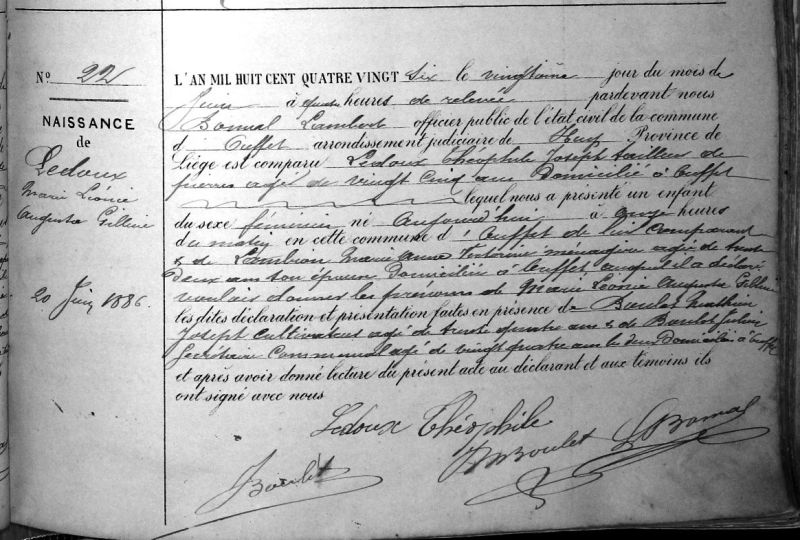 N° 22
NAISSANCE
de
Ledoux
Marie Léonie
Augusta
20 Juin 1886.
L'AN MIL HUIT CENT QUATRE VINGT six le vingtième jour du mois de
Juin à quatre heures de relevée pardevant nous
Bonmal Lambert officier public de l'état civil de la commune
d' Ouffet arrondissement judiciaire de Huy Province de
Liège est comparu Ledoux Théophile Joseph tailleur de
pierres agé de vingt cinq ans Domicilié à Ouffet
lequel nous a présenté un enfant
du sexe féminin né Aujourd'hui à onze heures
du matin en cette commune d' Ouffet de lui Comparant
& de Lambion Marie Anne ménagère agée de trente
Deux ans son épouse Domiciliée à Ouffet, auquel il a déclaré
vouloir donner les prénoms de Marie Léonie Augusta
les dites déclaration et présentation faites en présence de Boulet Mathieu
Joseph Cultivateur agé de trente quatre ans & de Boulet
Secrétaire Communal agé de vingt quatre ans les deux Domiciliés à Ouffet
et après avoir donné lecture du présent acte au déclarant et aux témoins ils
ont signé avec nous
Ledoux Théophile
Boulet
Boulet
LBonmal